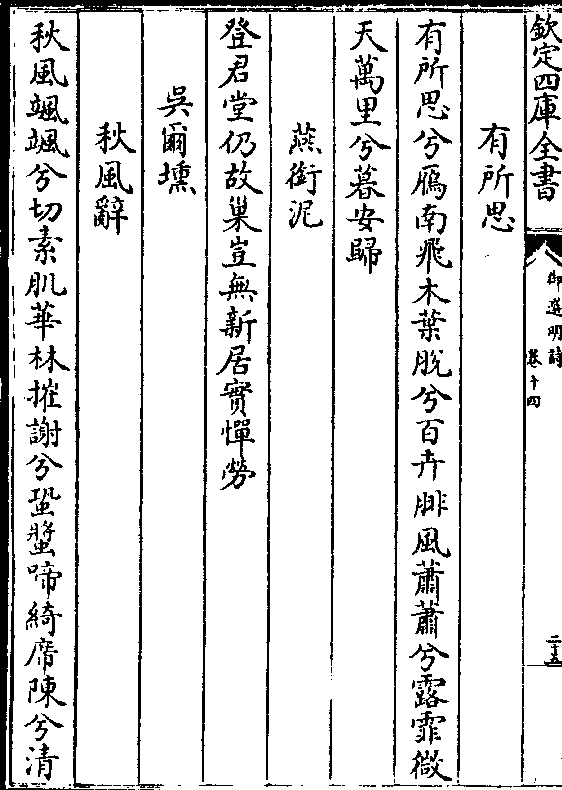 欽定四庫全書
御選明詩
卷十四
二十五
有所思
有所思兮鴈南飛木葉脫兮百卉腓風蕭蕭兮露霏微
天萬里兮暮安歸
燕銜泥
登君堂仍故巢豈無新居實憚勞
吳爾壎
秋風辭
秋風颯颯兮切素肌華林摧謝兮蛩螿啼綺席陳兮清